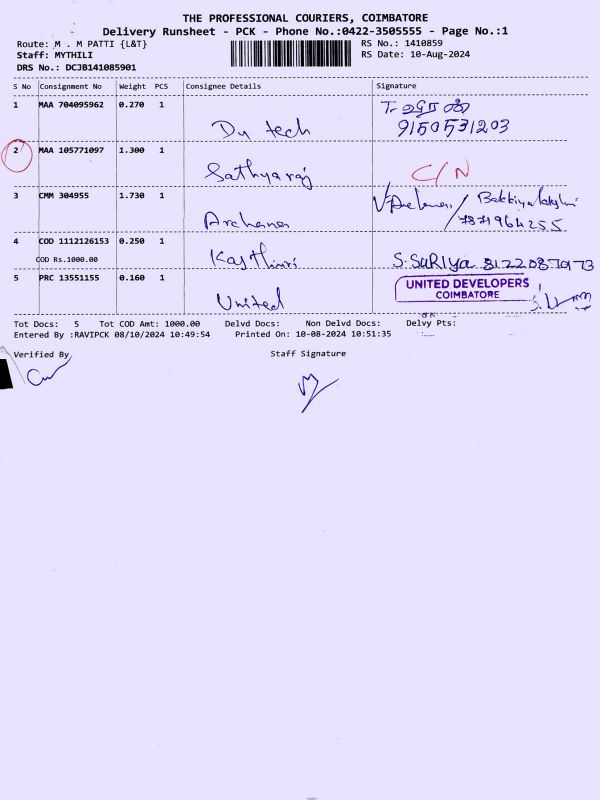 THE PROFESSIONAL COURIERS, COIMBATORE
Delivery Runsheet - PCK - Phone No.:0422-3505555 - Page No.:1
Route: M . M PATTI {L&T} RS No.: 1410859
Staff: MYTHILI RS Date: 10-Aug-2024
DRS No.: DCJB141085901
S No Consignment No Weight PCS Consignee Details Signature
1 MAA 704095962 0.270 1 Du tech
9150531203
2 MAA 105771097 1.300 1 Sathyaraj C/N
3 CMM 304955 1.730 1 Archana V. Archana / Bakkiyalakshi
7871964255
4 COD 1112126153 0.250 1 Kasthuri S. SURIYA
COD Rs.1000.00
5 PRC 13551155 0.160 1 United UNITED DEVELOPERS
COIMBATORE
Tot Docs: 5 Tot COD Amt: 1000.00 Delvd Docs: Non Delvd Docs: Delvy Pts:
Entered By :RAVIPCK 08/10/2024 10:49:54 Printed On: 10-08-2024 10:51:35
Verified By Staff Signature